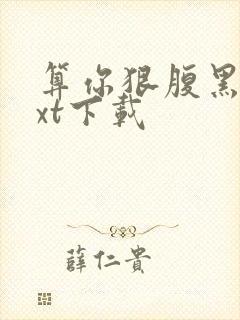 算你狠腹黑
xt下載
薛仁貴